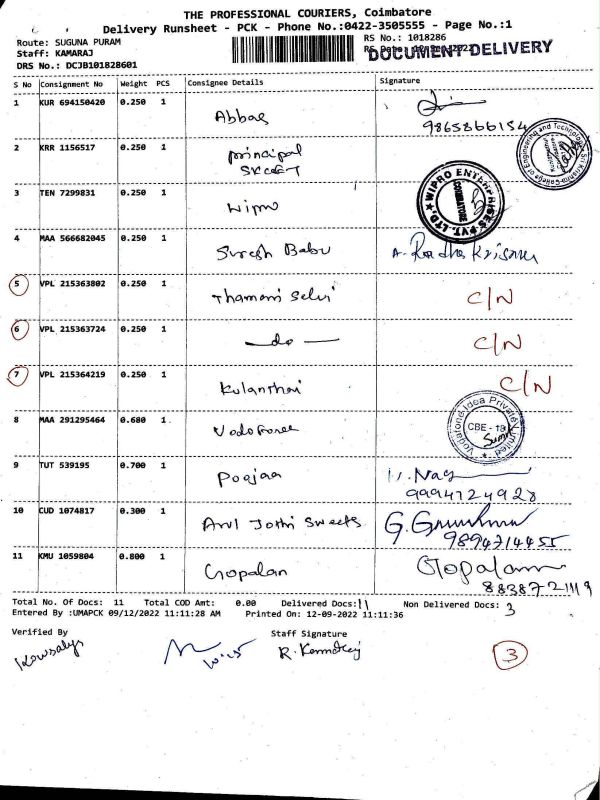 THE PROFESSIONAL COURIERS, Coimbatore
Delivery Runsheet - PCK - Phone No.:0422-3505555 - Page No.:1
Route: SUGUNA PURAM
RS No.: 1018286
Staff: KAMARAJ
DOCUMENT DELIVERY
DRS No.: DCJB101828601
S No Consignment No Weight PCS Consignee Details Signature
1 KUR 694150420 0.250 1 Abbas
9865866154
2 KRR 1156517 0.250 1 principal
SKCET
3 TEN 7299831 0.250 1 Wipro
WIPRO ENTERPRISES PVT. LTD. COIMBATORE
4 MAA 566682045 0.250 1 Suresh Babu A. Radha Krisnan
5 VPL 215363802 0.250 1 Thamani Selvi C/N
6 VPL 215363724 0.250 1 — do — C/N
7 VPL 215364219 0.250 1 Kulanthai C/N
8 MAA 291295464 0.680 1 Vodafone
Vodafone Idea Private Limited CBE - 18
9 TUT 539195 0.700 1 Poojaa
9994724928
10 CUD 1074817 0.300 1 Arul Jothi Sweets
9894714455
11 KMU 1059804 0.800 1 Gopalan Gopalan
8838721119
Total No. Of Docs: 11 Total COD Amt: 0.00 Delivered Docs: 11 Non Delivered Docs: 3
Entered By :UMAPCK 09/12/2022 11:11:28 AM Printed On: 12-09-2022 11:11:36
Verified By Staff Signature
Kowsalya
3